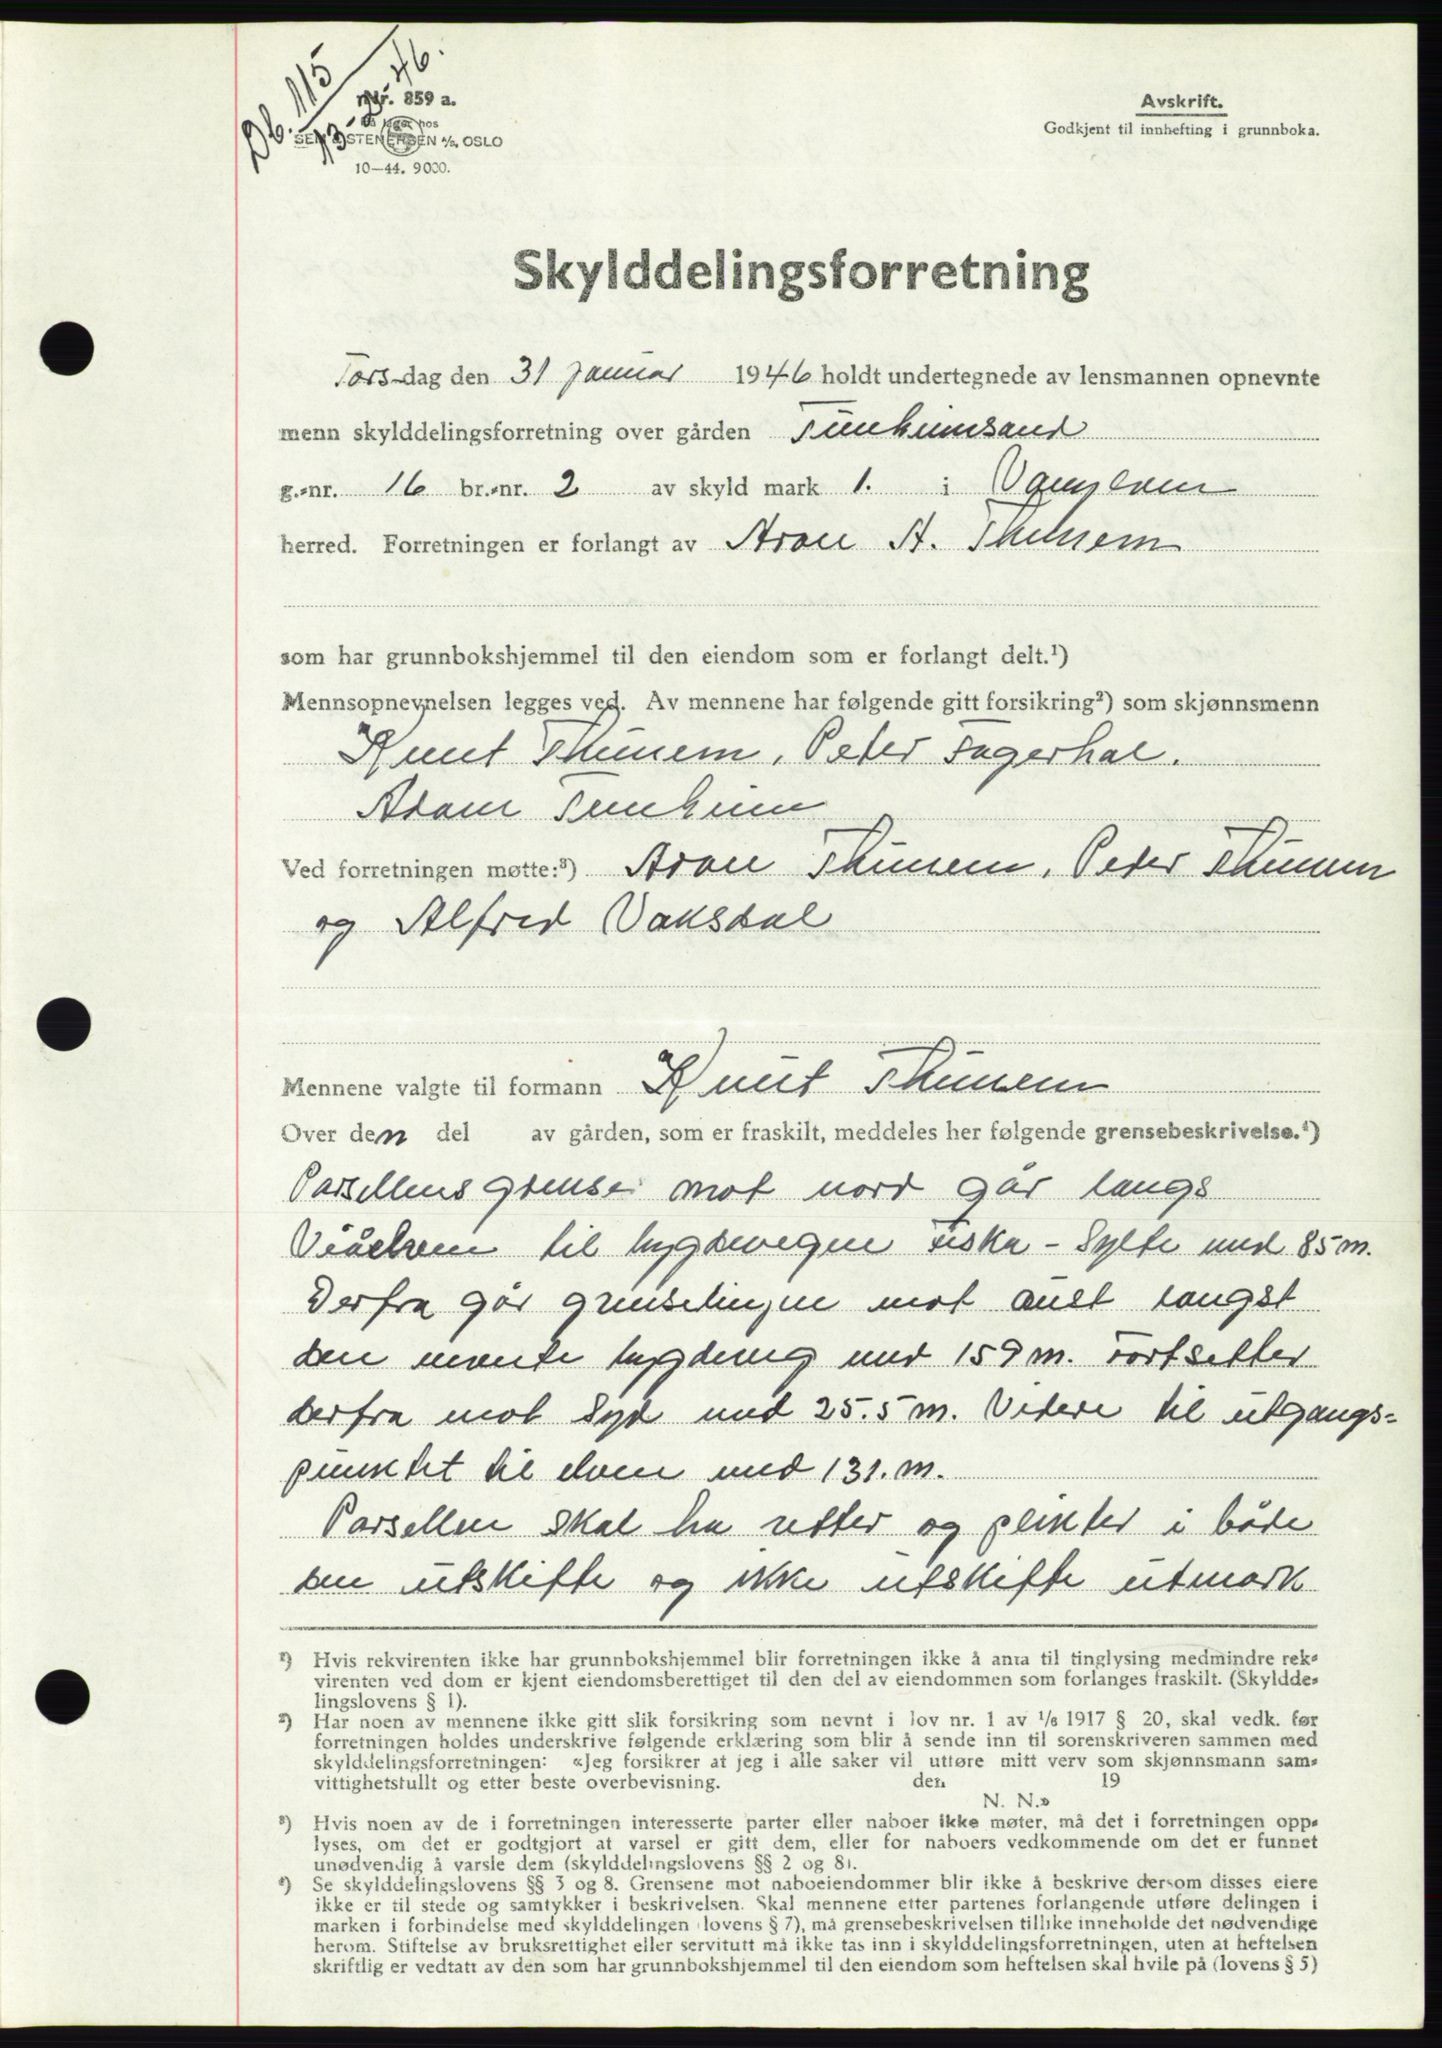 Db. 115
13-2-46.
Nr. 859 a.
På lager hos
SEM & STENERSEN A/S, OSLO
10—44. 9000.
Avskrift.
Godkjent til innhefting i grunnboka.
Skylddelingsforretning
Tors-dag den 31 januar 1946 holdt undertegnede av lensmannen opnevnte
menn skylddelingsforretning over gården Tunheimsand
g.-nr. 16 br.-nr. 2 av skyld mark 1. i Vanylven
herred. Forretningen er forlangt av Aron A. Thunem
som har grunnbokshjemmel til den eiendom som er forlangt delt.¹)
Mennsopnevnelsen legges ved. Av mennene har følgende gitt forsikring²) som skjønnsmenn
Knut Thunem, Peter Fagerhol.
Adam Tunheim
Ved forretningen møtte:³) Aron Thunem, Peter Thunem
og Alfred Vaksdal
Mennene valgte til formann Knut Thunem
Over den del av gården, som er fraskilt, meddeles her følgende grensebeskrivelse.⁴)
Parsellens grense mot nord går langs
til bygdevegen Fiska - Sylte med 85 m.
Derfra går grenselinjen mot aust langst
den nevnte bygdeveg med 159 m. Fortsetter
derfra mot Syd med 25.5 m. Videre til utgangs=
punktet til elven med 131. m.
Parsellen skal ha retter og plikter i både
den utskifte og ikke utskifte utmark
¹) Hvis rekvirenten ikke har grunnbokshjemmel blir forretningen ikke å anta til tinglysing medmindre rek-
virenten ved dom er kjent eiendomsberettiget til den del av eiendommen som forlanges fraskilt. (Skyldde-
lingslovens § 1).
²) Har noen av mennene ikke gitt slik forsikring som nevnt i lov nr. 1 av 1/6 1917 § 20, skal vedk. før
forretningen holdes underskrive følgende erklæring som blir å sende inn til sorenskriveren sammen med
skylddelingsforretningen: «Jeg forsikrer at jeg i alle saker vil utføre mitt verv som skjønnsmann sam-
vittighetsfullt og etter beste overbevisning. den 19
N. N.»
³) Hvis noen av de i forretningen interesserte parter eller naboer ikke møter, må det i forretningen opp-
lyses, om det er godtgjort at varsel er gitt dem, eller for naboers vedkommende om det er funnet
unødvendig å varsle dem (skylddelingslovens §§ 2 og 8).
⁴) Se skylddelingslovens §§ 3 og 8. Grensene mot naboeiendommer blir ikke å beskrive dersom disses eiere
ikke er til stede og samtykker i beskrivelsen. Skal mennene etter partenes forlangende utføre delingen i
marken i forbindelse med skylddelingen (lovens § 7), må grensebeskrivelsen tillike inneholde det nødvendige
herom. Stiftelse av bruksrettighet eller servitutt må ikke tas inn i skylddelingsforretningen, uten at heftelsen
skriftlig er vedtatt av den som har grunnbokshjemmel til den eiendom som heftelsen skal hvile på (lovens § 5)